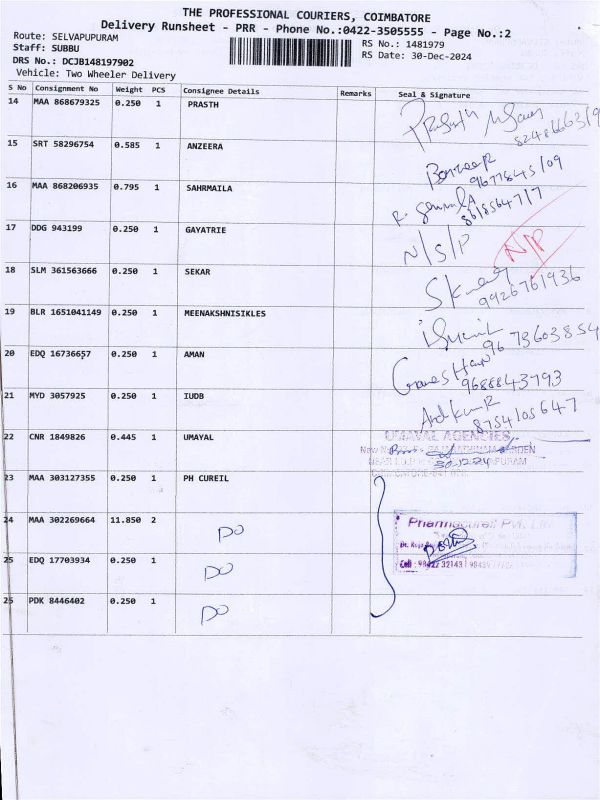 THE PROFESSIONAL COURIERS, COIMBATORE
Delivery Runsheet - PRR - Phone No.:0422-3505555 - Page No.:2
Route: SELVAPUPURAM
RS No.: 1481979
Staff: SUBBU
RS Date: 30-Dec-2024
DRS No.: DCJB148197902
Vehicle: Two Wheeler Delivery
S No Consignment No Weight PCS Consignee Details Remarks Seal & Signature
14 MAA 868679325 0.250 1 PRASTH
15 SRT 58296754 0.585 1 ANZEERA
16 MAA 868206935 0.795 1 SAHRMAILA
17 DDG 943199 0.250 1 GAYATRIE N/S/P N/P
18 SLM 361563666 0.250 1 SEKAR
9926761936
19 BLR 1651041149 0.250 1 MEENAKSHNISIKLES
20 EDQ 16736657 0.250 1 AMAN
9688843793
21 MYD 3057925 0.250 1 IUDB
8754105647
22 CNR 1849826 0.445 1 UMAYAL
UMAYAL AGENCIES
23 MAA 303127355 0.250 1 PH CUREIL
24 MAA 302269664 11.850 2 DO
Pharmacureil Pvt. Ltd
25 EDQ 17703934 0.250 1 DO
Cell : 98422 32143
25 PDK 8446402 0.250 1 DO